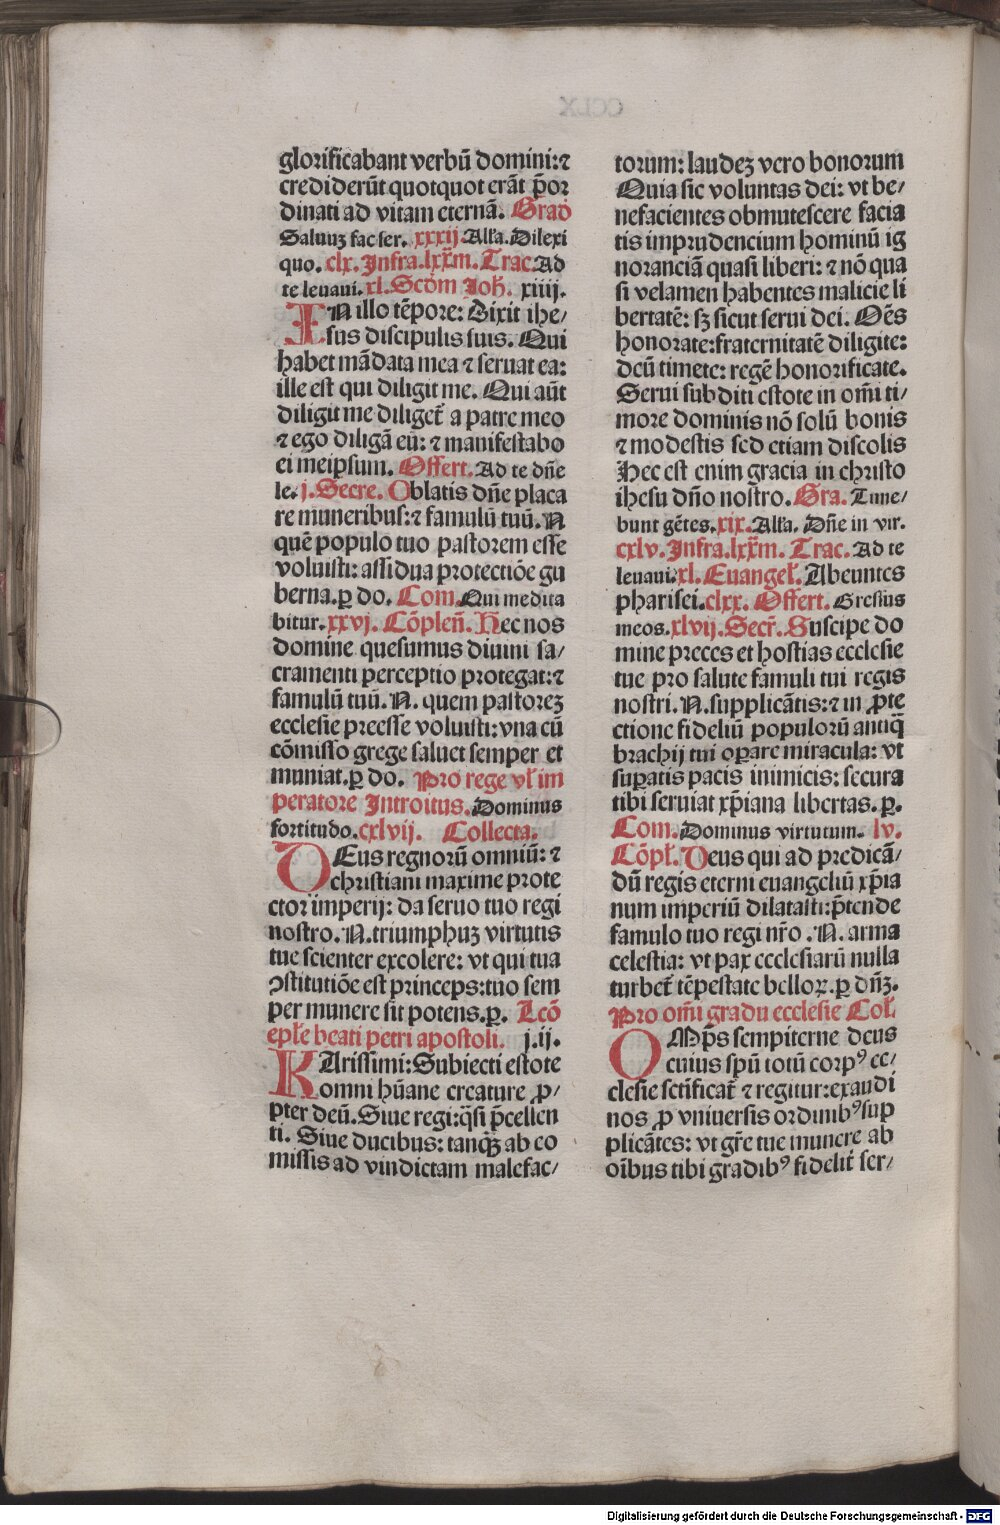 glorificabant verbū domini: ⁊
crediderūt quotquot erāt p̄or
dinati ad vitam eternā. Grad̄
Saluuꝫ fac ser. xxxij. Alľa. Dilexi
quo. clx. Infra .lxx̄m. Trac. Ad
te leuaui. xl. Scd̄m Joh̄. xiiij.
IN illo tēpore: Dixit ihe/
sus discipulis suis. Qui
habet mādata mea ⁊ seruat ea:
ille est qui diligit me. Qui aūt
diligit me diliget̄ a patre meo
⁊ ego diligā eū: ⁊ manifestabo
ei meipsum. Offert. Ad te dn̄e
le. j. Secre. Oblatis dn̄e placa
re muneribus: ⁊ famulū tuū. N
quē populo tuo pastorem esse
voluisti: assidua protectiōe gu
berna. ꝑ do. Com. Qui medita
bitur. xxvj. Cōpleñ. Hec nos
domine quesumus diuini sa/
cramenti perceptio protegat: ⁊
famulū tuū. N. quem pastoreꝫ
ecclesie preesse voluisti: vna cū
cōmisso grege saluet semper et
muniat. ꝑ do. Pro rege vľ im
peratore Introitus. Dominus
fortitudo. cxlvij. Collecta.
DEus regnorū omniū: ⁊
christiani maxime prote
ctor imperij: da seruo tuo regi
nostro. N. triumphuꝫ virtutis
tue scienter excolere: vt qui tua
ꝯstitutiōe est princeps: tuo sem
per munere sit potens. ꝑ. Lcō
epľe beati petri apostoli. j. ij.
KArissimi: Subiecti estote
omni hūane creature ꝓ/
pter deū. Siue regi: q̄si p̄cellen
ti. Siue ducibus: tanqꝫ̄ ab eo
missis ad vindictam malefac/
torum: laudeꝫ vero bonorum
Quia sic voluntas dei: vt be/
nefacientes obmutescere facia
tis imprudencium hominū ig
noranciā quasi liberi: ⁊ nō qua
si velamen habentes malicie li
bertatē: sꝫ sicut serui dei. Oēs
honorate: fraternitatē diligite:
deū timete: regē honorificate.
Serui subditi estote in om̄i ti/
more dominis nō solū bonis
⁊ modestis sed etiam discolis
Hec est enim gracia in christo
ihesu dn̄o nostro. Gra. Time/
bunt gētes. xix. Alľa. Dn̄e in vir.
cxlv. Infra .lxx̄m. Trac. Ad te
leuaui. xl. Euangel̄. Abeuntes
pharisei. clxx. Offert. Gressus
meos. xlvij. Secr̄. Suscipe do
mine preces et hostias ecclesie
tue pro salute famuli tui regis
nostri. N. supplicātis: ⁊ in ꝓte
ctione fideliū populorū antiq̄
brachij tui oꝑare miracula: vt
suꝑatis pacis inimicis: secura
tibi seruiat xp̄iana libertas. ꝑ.
Com. Dominus virtutum. lv.
Cōpl̄. Deus qui ad predicā/
dū regis eterni euangeliū xp̄ia
num imperiū dilatasti: p̄tende
famulo tuo regi nr̄o . N. arma
celestia: vt pax ecclesiarū nulla
turbet̄ tēpestate belloꝝ. ꝑ dn̄ꝫ.
Pro om̄i gradu ecclesie Col̄.
OMp̄s sempiterne deus
cuius spū totū corpꝰ ec/
clesie sctificat̄ ⁊ regitur: exaudi
nos ꝓ vniuersis ordinibꝰ sup
plicātes: vt gr̄e tue munere ab
oībus tibi gradibꝰ fidelit̄ ser/
CCLX
Digitalisierung gefördert durch die Deutsche Forschungsgemeinschaft - DFG